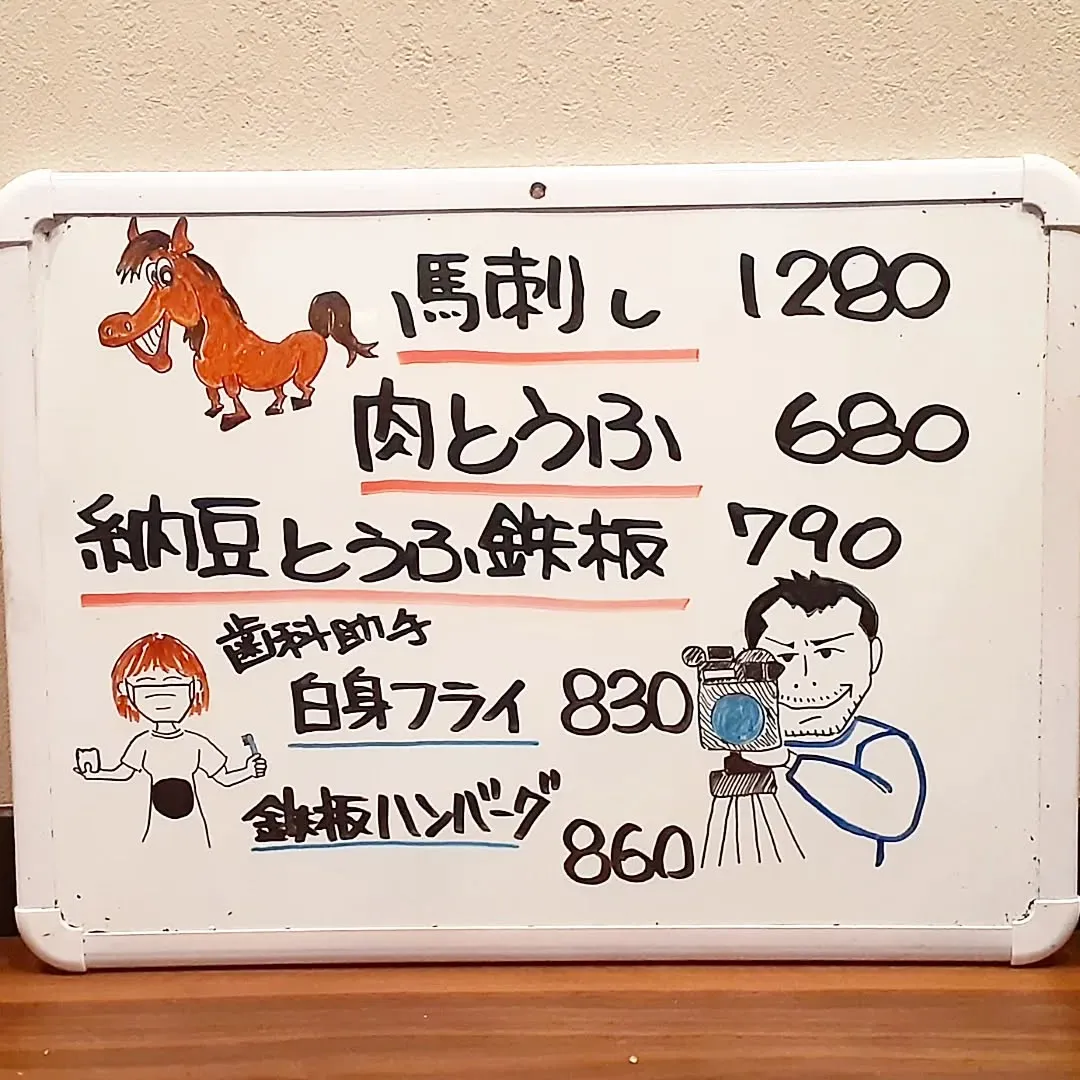 馬刺し 1280
肉とうふ 680
納豆とうふ鉄板 790
歯科助手
白身フライ 830
鉄板ハンバーグ 860